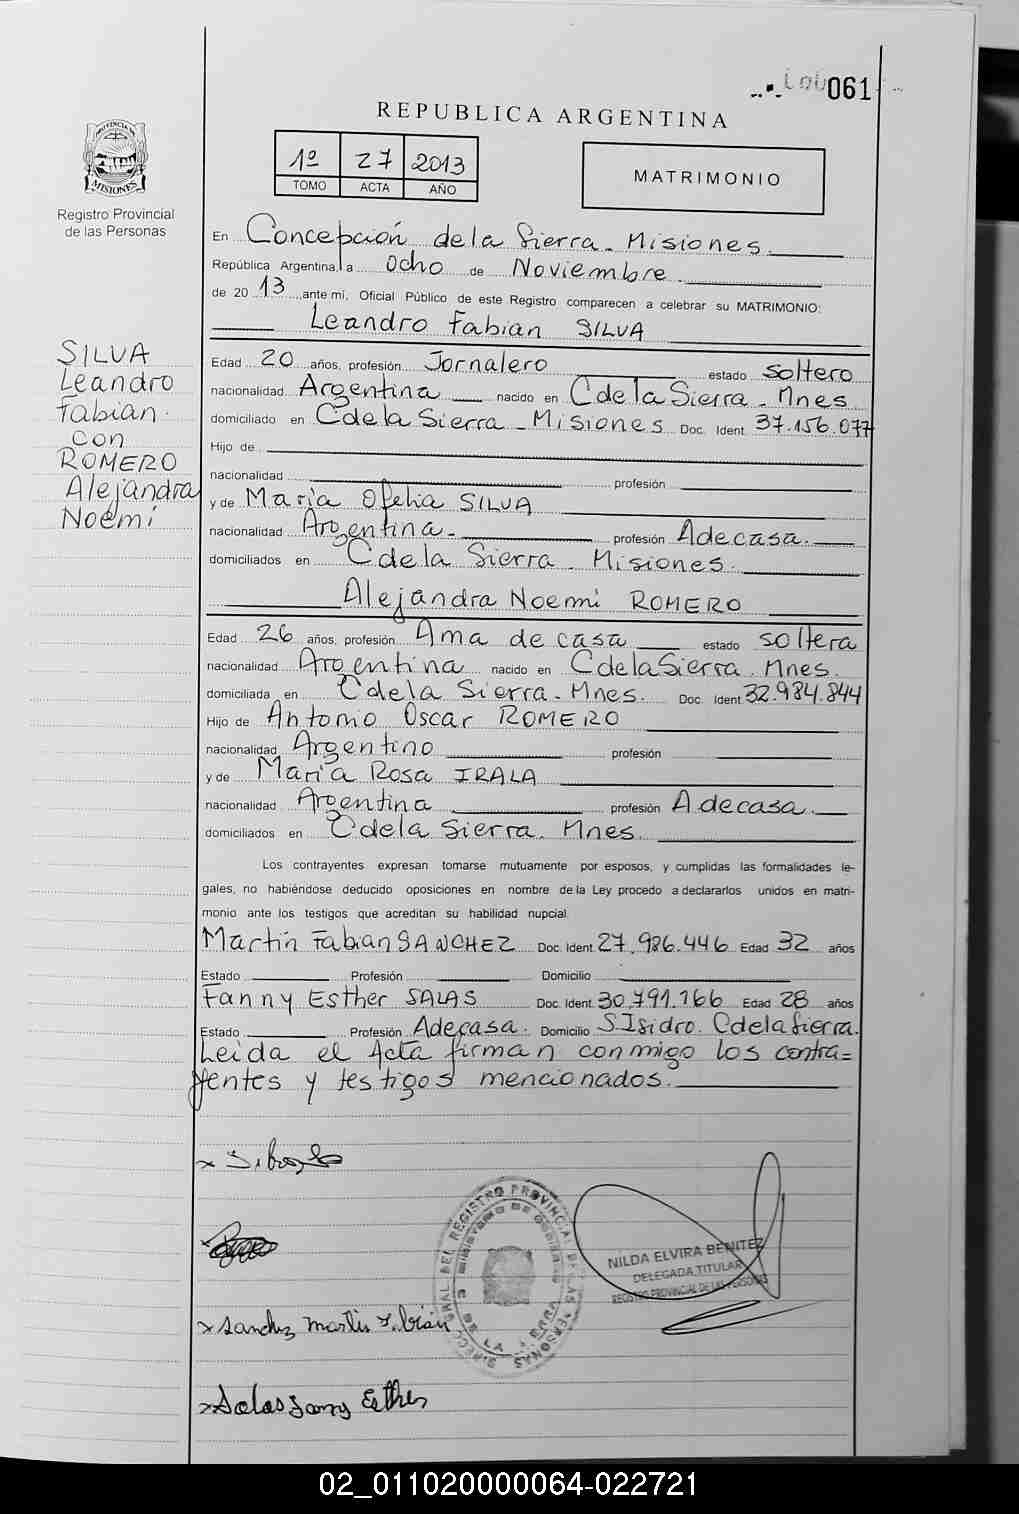 061
REPUBLICA ARGENTINA
PROVINCIA DE
MISIONES
Registro Provincial
de las Personas
1º 27 2013
TOMO ACTA AÑO
MATRIMONIO
En Concepción de la Sierra - Misiones.
República Argentina, a ocho de Noviembre
de 2013, ante mí, Oficial Público de este Registro comparecen a celebrar su MATRIMONIO:
Leandro Fabian SILVA
SILVA
Leandro
Fabian
con
ROMERO
Alejandra
Noemi
Edad 20 años, profesión Jornalero estado soltero
nacionalidad Argentina nacido en C de la Sierra - Mnes
domiciliado en C de la Sierra - Misiones Doc. Ident. 37.156.077
Hijo de
nacionalidad profesión
y de Maria Ofelia SILVA
nacionalidad Argentina. profesión A de casa.
domiciliados en C de la Sierra - Misiones.
Alejandra Noemi ROMERO
Edad 26 años, profesión Ama de casa estado soltera
nacionalidad Argentina nacido en C de la Sierra. Mnes.
domiciliada en C de la Sierra - Mnes. Doc. Ident 32.984.844
Hijo de Antonio Oscar ROMERO
nacionalidad Argentino profesión
y de Maria Rosa IRALA
nacionalidad Argentina profesión A de casa.
domiciliados en C de la Sierra. Mnes.
Los contrayentes expresan tomarse mutuamente por esposos, y cumplidas las formalidades le-
gales, no habiéndose deducido oposiciones en nombre de la Ley procedo a declararlos unidos en matri-
monio ante los testigos que acreditan su habilidad nupcial.
Martín Fabian SANCHEZ Doc. Ident. 27.986.446 Edad 32 años
Estado Profesión Domicilio
Fanny Esther SALAS Doc. Ident. 30.791.166 Edad 28 años
Estado Profesión A de casa. Domicilio S Isidro. C de la Sierra.
Leida el Acta firman conmigo los contra=
yentes y testigos mencionados.
NILDA ELVIRA BENITEZ
DELEGADA TITULAR
REGISTRO PROVINCIAL DE LAS PERSONAS
x Sanchez Martin Fabián
x Salas Fanny Esther
02_011020000064-022721